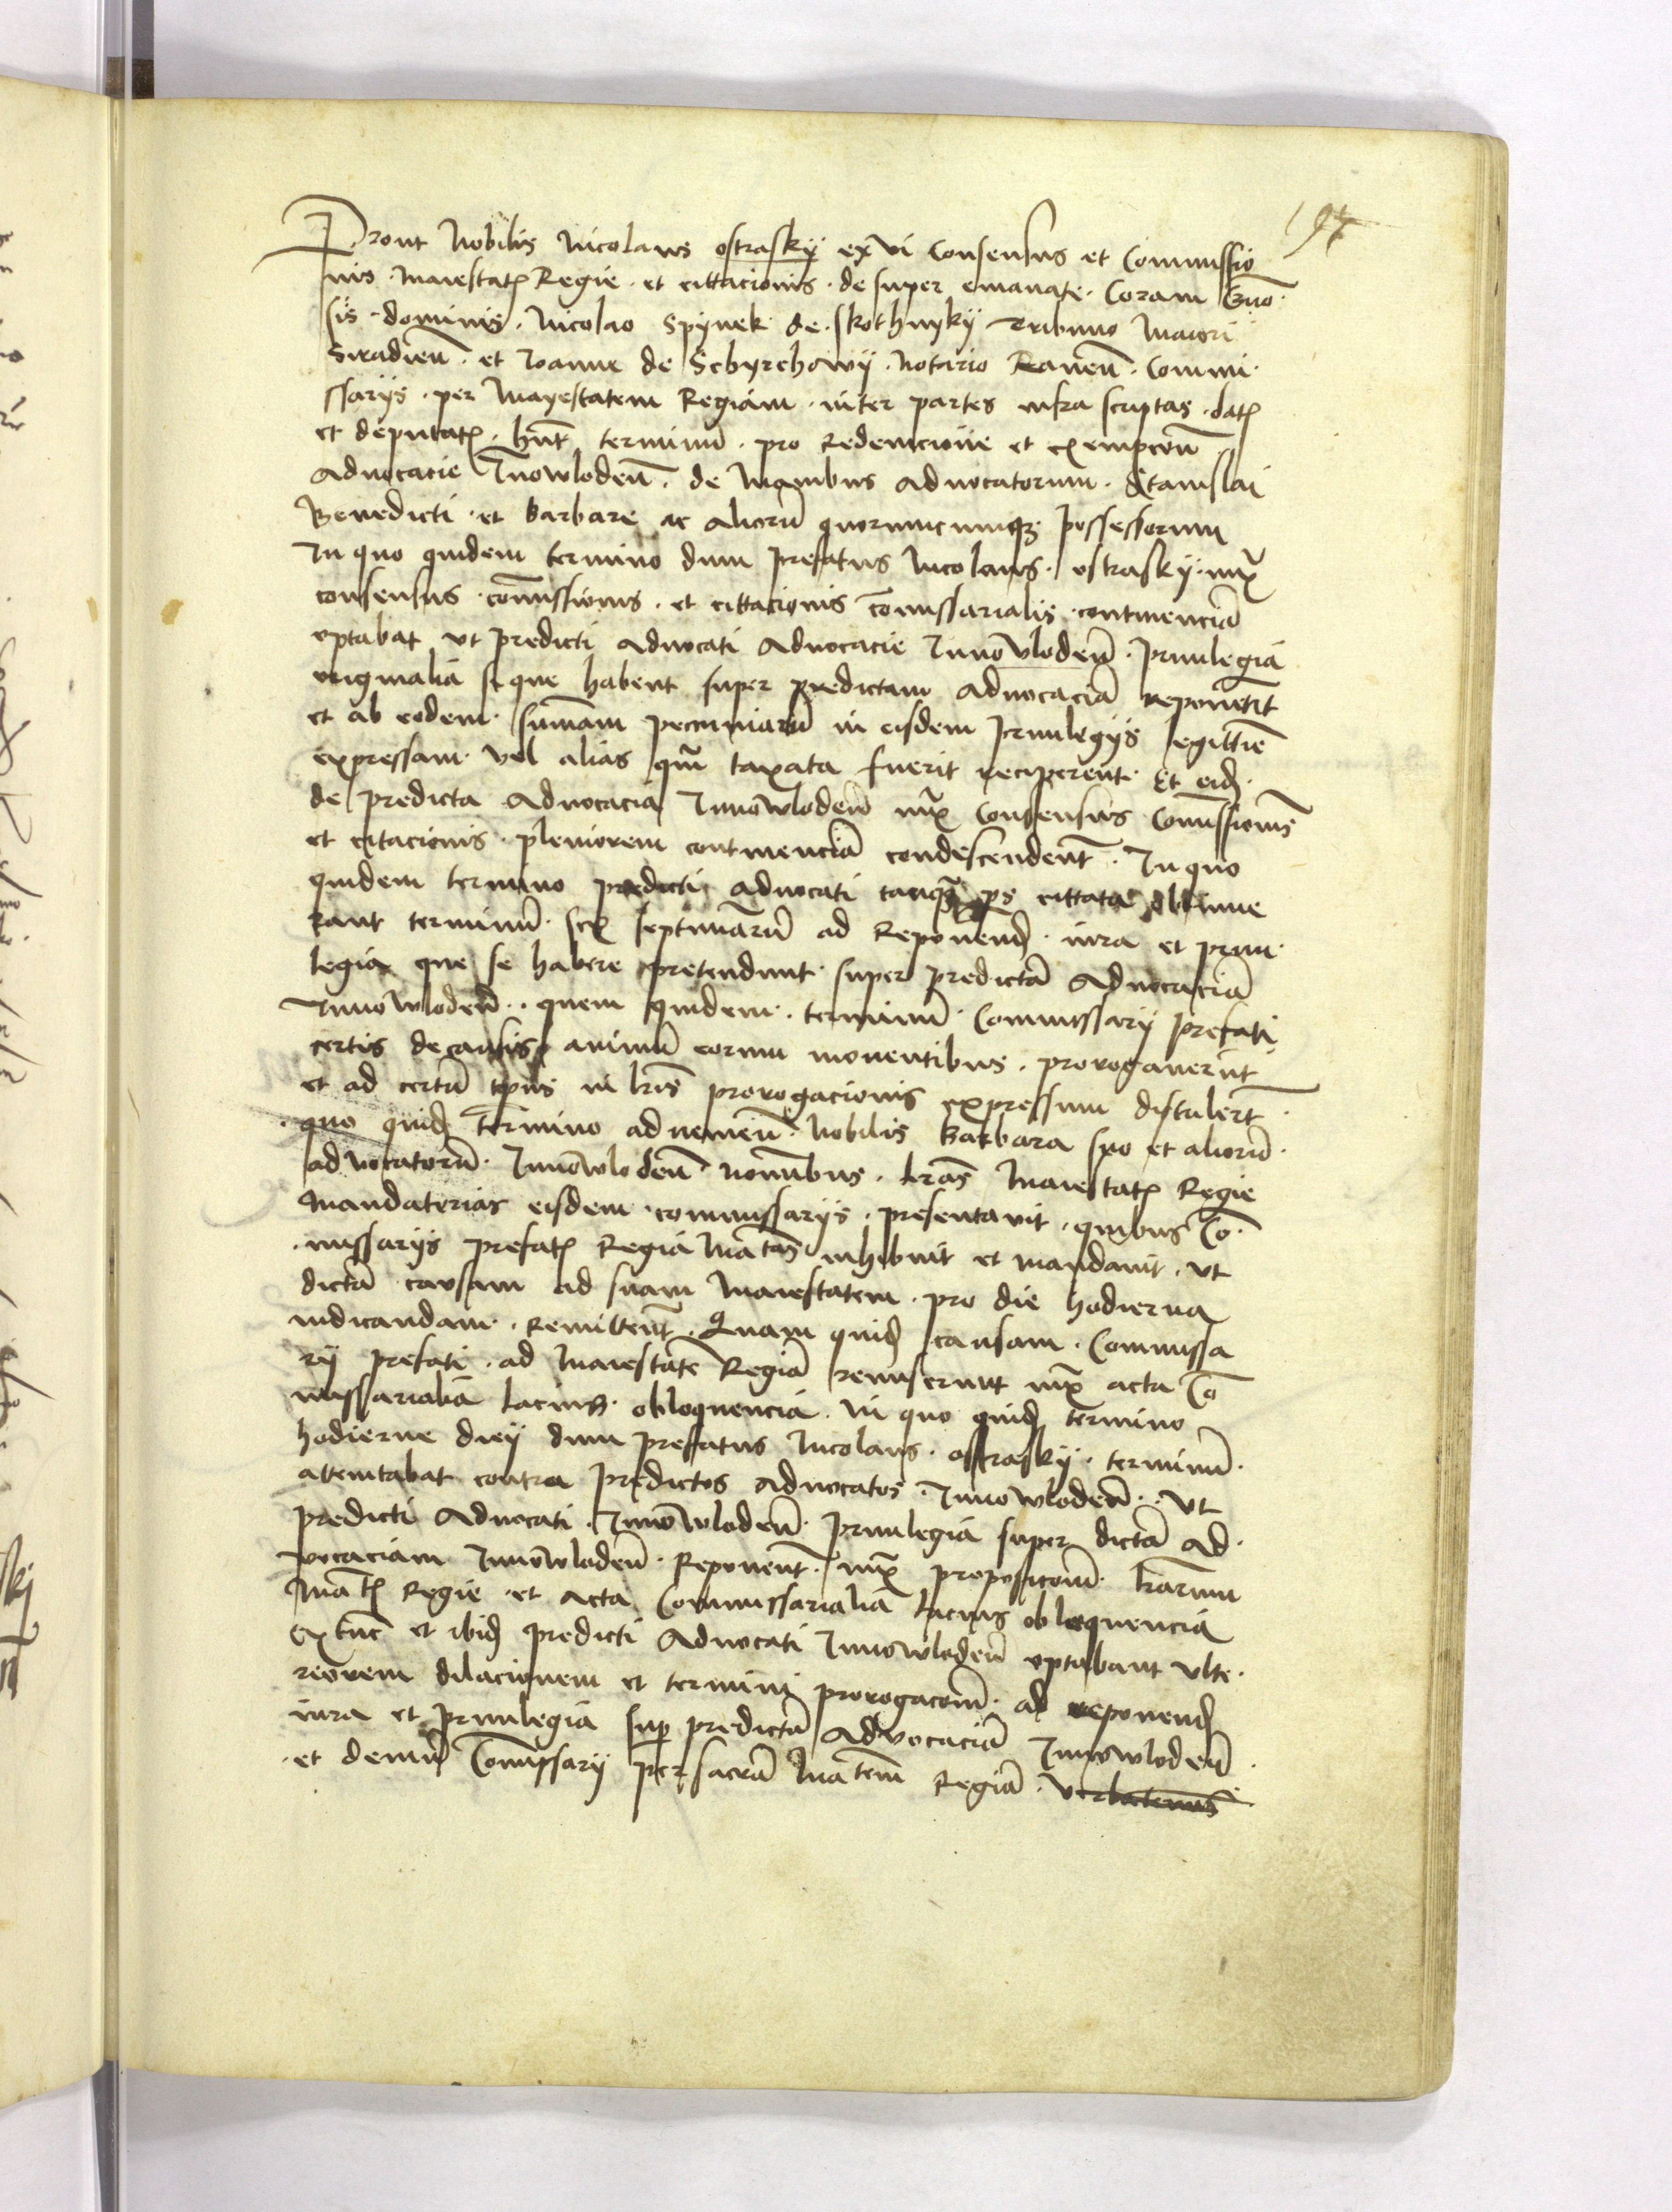 197
Prout Nobilis Nicolaus ostrasky ex vi Consensus et Commissio
nis Maiestat(is) Regie et cittacionis de super emanate Coram Gn̄o
sis dominis Nicolao Spynek de skothnyky Tribuno Maiori
Siradien̄ et Ioanne de Sebyrchowy Notario Ravēn Commi
ssarijs per Mayestatem Regiam inter partes infra scriptas dat(is)
et deputat(is) hn̄t terminū pro Redemcione et exempcōn
Advocacie Inowloden̄ de Manibus advocatorum Stanislai
Benedicti et barbare ac aliorū quorumcumq(ue) possessorum
In quo quidem termino dum prefatus Nicolaus ostrasky iux(ta)
consensus cōmissionis et cittacionis cōmissarialis continenciā
optabat ut predicti advocati Advocacie Innowloden̄ privilegia
originalia si que habent super predictam advocaciā reponerēt
et ab eodem sum̄am pecuniarū in eisdem privilegijs legittīe
expressam vel alias qm̄ taxata fuerit reciperent Et eid(em)
de predicta Advocacia Innowloden̄ iux(ta) Consensus Com̄issionis
et citacionis pleniorem continenciā condescenderēt In quo
quidem termino predicti advocati tanq(uam) ps cittata obtinue
rant terminū sex septimanarū ad Reponend(um) iura et privi
legia que se habere pretendunt super predictā Advocaciā
Innowloden̄ quem quidem terminū Commissarij prefati
certis de causis animū eorum moventibus prorogaverūt
et ad certū tp̄us in lr̄is prorogacionis expressum distulerūt
quo quid(em) termino adveniēn Nobilis barbara suo et aliorū
advocatorū Innowloden̄ nominibus lr̄as Maiestat(is) Regie
Mandatorias eisdem commissarijs presentavit quibus Cō
missarijs prefat(is) Regia Mātas inhibuit et mandavit ut
dictā causam ad suam Maiestatem pro die hodierna
iudicandam Remitterēt Quam quid(em) causam Commissa
rij prefati ad Maiestatē Regiā remiserunt iux(ta) acta Cō
missarialia lacius obloquencia In quo quid(em) termino
hodierne diey dum prefatus Nicolaus ostrasky terminū
attemtabat contra predictos advocatos Innowloden̄ Ut
predicti Advocati Innowloden̄ privilegia super dictā Ad
vocaciam Innowloden̄ Reponerēt iux(ta) proposicōm lr̄arum
Māt(is) Regie et acta Commissarialia lacius obloquencia
Ex tūc et ibid(em) predicti Advocati Innowloden̄ optabant ulte
riorem dilacionem et termini prorogacōm ad reponend(um)
iura et privilegia sup(er) predictā Advocaciā Innowloden̄
et demū Com̄issarij per sacrā Mātem Regiā verbatenus